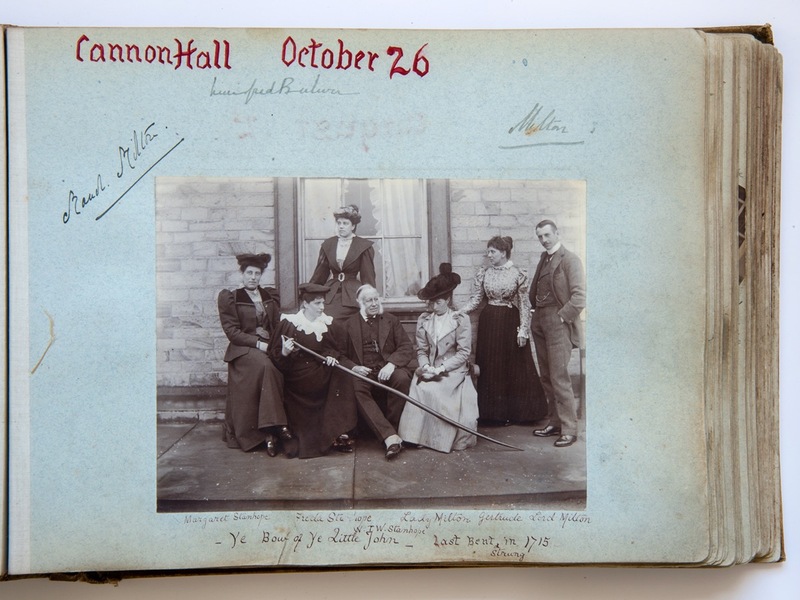 Cannon Hall October 26
Winifred Bulwer
Milton
Maud. Milton.
Margaret Stanhope Freda Stanhope Lady Milton Gertrude Lord Milton
W.S.W. Stanhope
- Ye Bow of Ye Little John - Last Bent, in 1715
strung